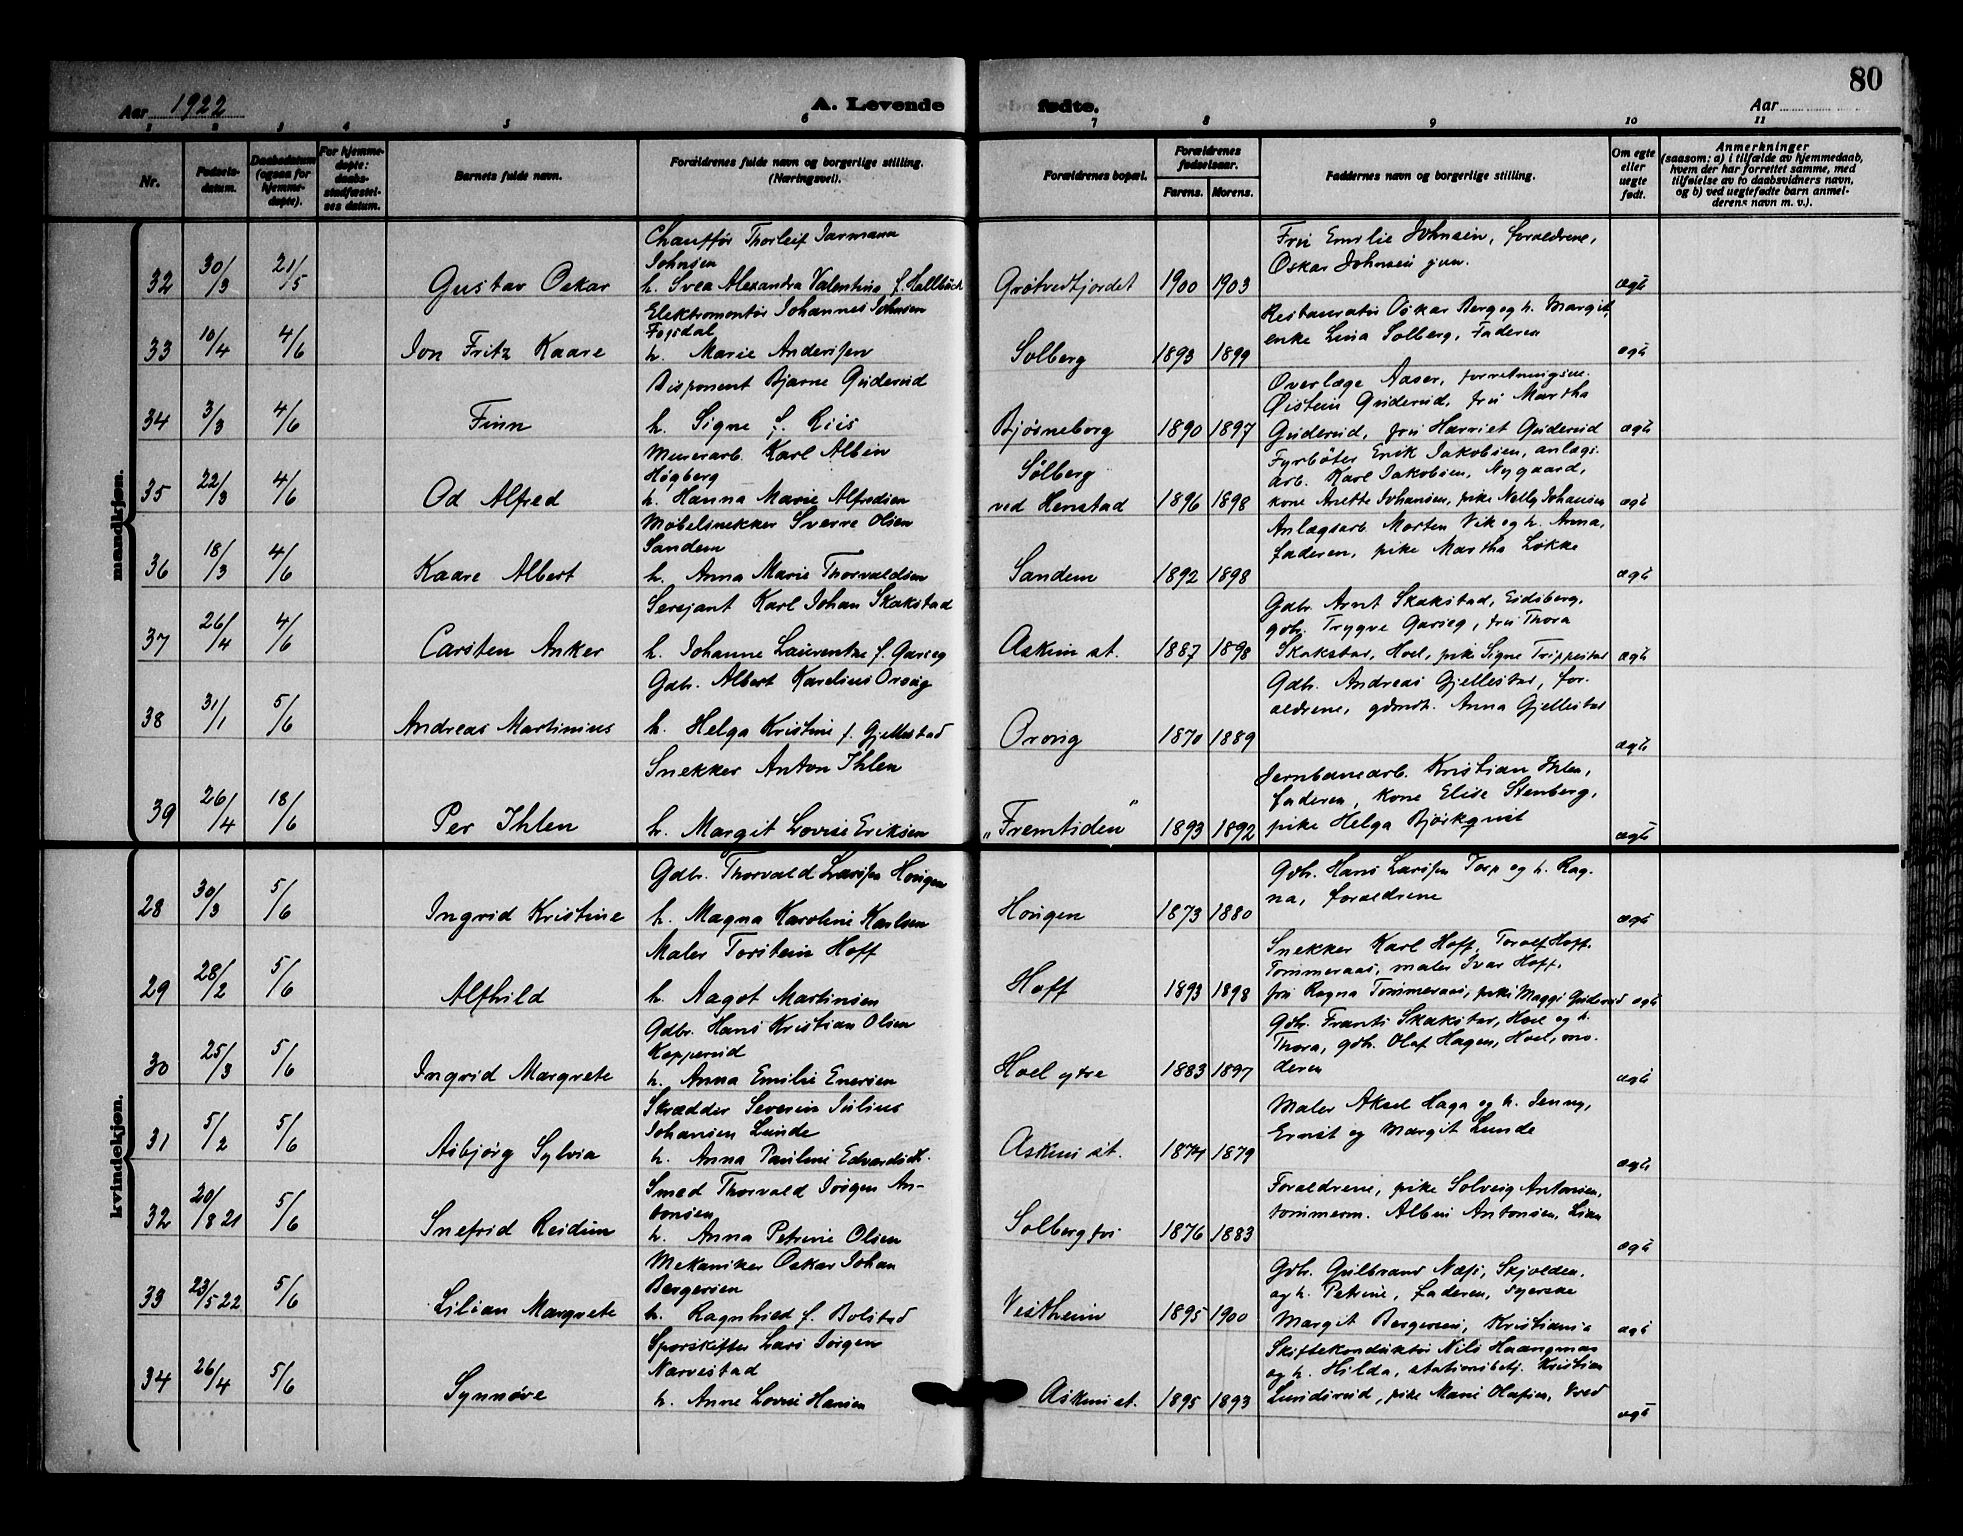 80
Aar 1922
A. Levende
fødte.
Aar
1 2 3 4 5 6
7 8 9 10 11
Nr.
Fødsels-
datum.
Daabsdatum
(ogsaa for
hjemme-
døpte).
For hjemme-
døpte:
daabs-
stadfæstel-
ses datum.
Barnets fulde navn.
Forældrenes fulde navn og borgerlige stilling.
(Næringsvei).
Forældrenes bopæl.
Forældrenes
fødselsaar.
Farens. Morens.
Faddernes navn og borgerlige stilling.
Om egte
eller
uegte
født.
Anmerkninger
(saasom: a) i tilfælde av hjemmedaab,
hvem der har forrettet samme, med
tilføielse av to daabsvidners navn,
og b) ved uegtefødte barn anmel-
derens navn m. v.).
mandkjøn.
32 30/3 21/5 Gustav Oskar
Chauffør Thorleif Jarmann
Johnsen
h. Svea Alexandra Valentina f. Hallbäck
Grøtvedtjordet 1900 1903
Fru Emilie Johnsen, forældrene,
Oskar Johnsen jun.
ægte
33 10/4 4/6 Jon Fritz Kaare
Elektromontør Johannes Johnsen
Fossdal
h. Marie Andersen
Solberg 1893 1899
Restauratør Oskar Berg og h. Margit,
enke Lina Solberg, Faderen
ægte
34 3/3 4/6 Finn
Disponent Bjarne Guderud
h. Signe f. Riis
Bjøsneborg 1890 1897
Overlæge Aaser, forretningsm.
Øistein Guderud, fru Martha
Guderud, fru Harriet Guderud
ægte
35 22/3 4/6 Od Alfred
Murerarb. Karl Albin
Høgberg
h. Hanna Marie Alfredsen
Solberg
ved Henstad 1896 1898
Fyrbøter Erik Jakobsen, anlægs-
arb. Karl Jakobsen, Nygaard,
kone Anette Johansen, pike Nelly Johansen
ægte
36 18/3 4/6 Kaare Albert
Møbelsnekker Sverre Olsen
Sandem
h. Anna Marie Thorvaldsen
Sandem 1892 1898
Anlægsarb. Morten Vik og h. Anna,
faderen, pike Martha Løkke
ægte
37 26/4 4/6 Carsten Anker
Sersjant Karl Johan Skakstad
h. Johanne Laurentze f. Garseg
Askim st. 1887 1898
Gdbr. Arnt Skakstad, Eidsberg,
gdbr. Trygve Garseg, fru Thora
Skakstad, Hoel, pike Signe Trippestad
ægte
38 31/1 5/6 Andreas Martinius
Gdbr. Albert Karelius Orvig
h. Helga Kristine f. Gjellestad
Orvig 1870 1889
Gdbr. Andreas Gjellestad, for-
ældrene, gdmdt. Anna Gjellestad
ægte
39 26/4 18/6 Per Ihlen
Snekker Anton Ihlen
h. Margit Lovise Eriksen
„Fremtiden" 1893 1892
Jernbanearb. Kristian Ihlen,
faderen, kone Elise Stenberg,
pike Helga Bjørkqvist
ægte
kvindekjøn.
28 30/3 5/6 Ingrid Kristine
Gdbr. Thorvald Larsen Hougen
h. Magna Karoline Karlsen
Hougen 1873 1880
Gdb. Hans Larsen Torp og h. Rag-
na, forældrene
ægte
29 28/2 5/6 Alfhild
Maler Torstein Hoff
h. Aagot Martinsen
Hoff 1893 1898
Snekker Karl Hoff, Toralf Hoff
Tømmeraas, maler Ivar Hoff,
fru Ragna Tømmeraas, pike Maggi Guderud
ægte
30 25/3 5/6 Ingrid Margrete
Gdbr. Hans Kristian Olsen
Kopperud
h. Anna Emilie Enersen
Hoel ytre 1883 1897
Gdb. Frants Skakstad, Hoel og h.
Thora, gdb. Olaf Hagen, Hoel, mo-
deren
ægte
31 5/2 5/6 Asbjørg Sylvia
Skrædder Severin Julius
Johansen Lunde
h. Anna Pauline Edvardsdt.
Askim st. 1874 1879
Maler Aksel Haga og h. Jenny,
Ernst og Margit Lunde
ægte
32 20/8 21 5/6 Snefrid Reidun
Smed Thorvald Jørgen An-
tonsen
h. Anna Petrine Olsen
Solbergfos 1876 1883
Forældrene, pike Solveig Antonsen,
tømmerm. Albin Antonsen, Lian
ægte
33 23/5 22 5/6 Lilian Margrete
Mekaniker Oskar Johan
Bergersen
h. Ragnhild f. Bolstad
Vestheim 1895 1900
Gdb. Gulbrand Næss, Skjolden,
og h. Petrine, faderen, syerske
Margit Bergersen, Kristiania
ægte
34 26/4 5/6 Synnøve
Sporskifter Lars Jørgen
Narvestad
h. Anne Lovise Hansen
Askim st. 1895 1893
Skiftekonduktør Nils Haangmas
og h. Hilda, stationsbetj. Kristian
Lundsrud, pike Marie Olafsen,
ægte